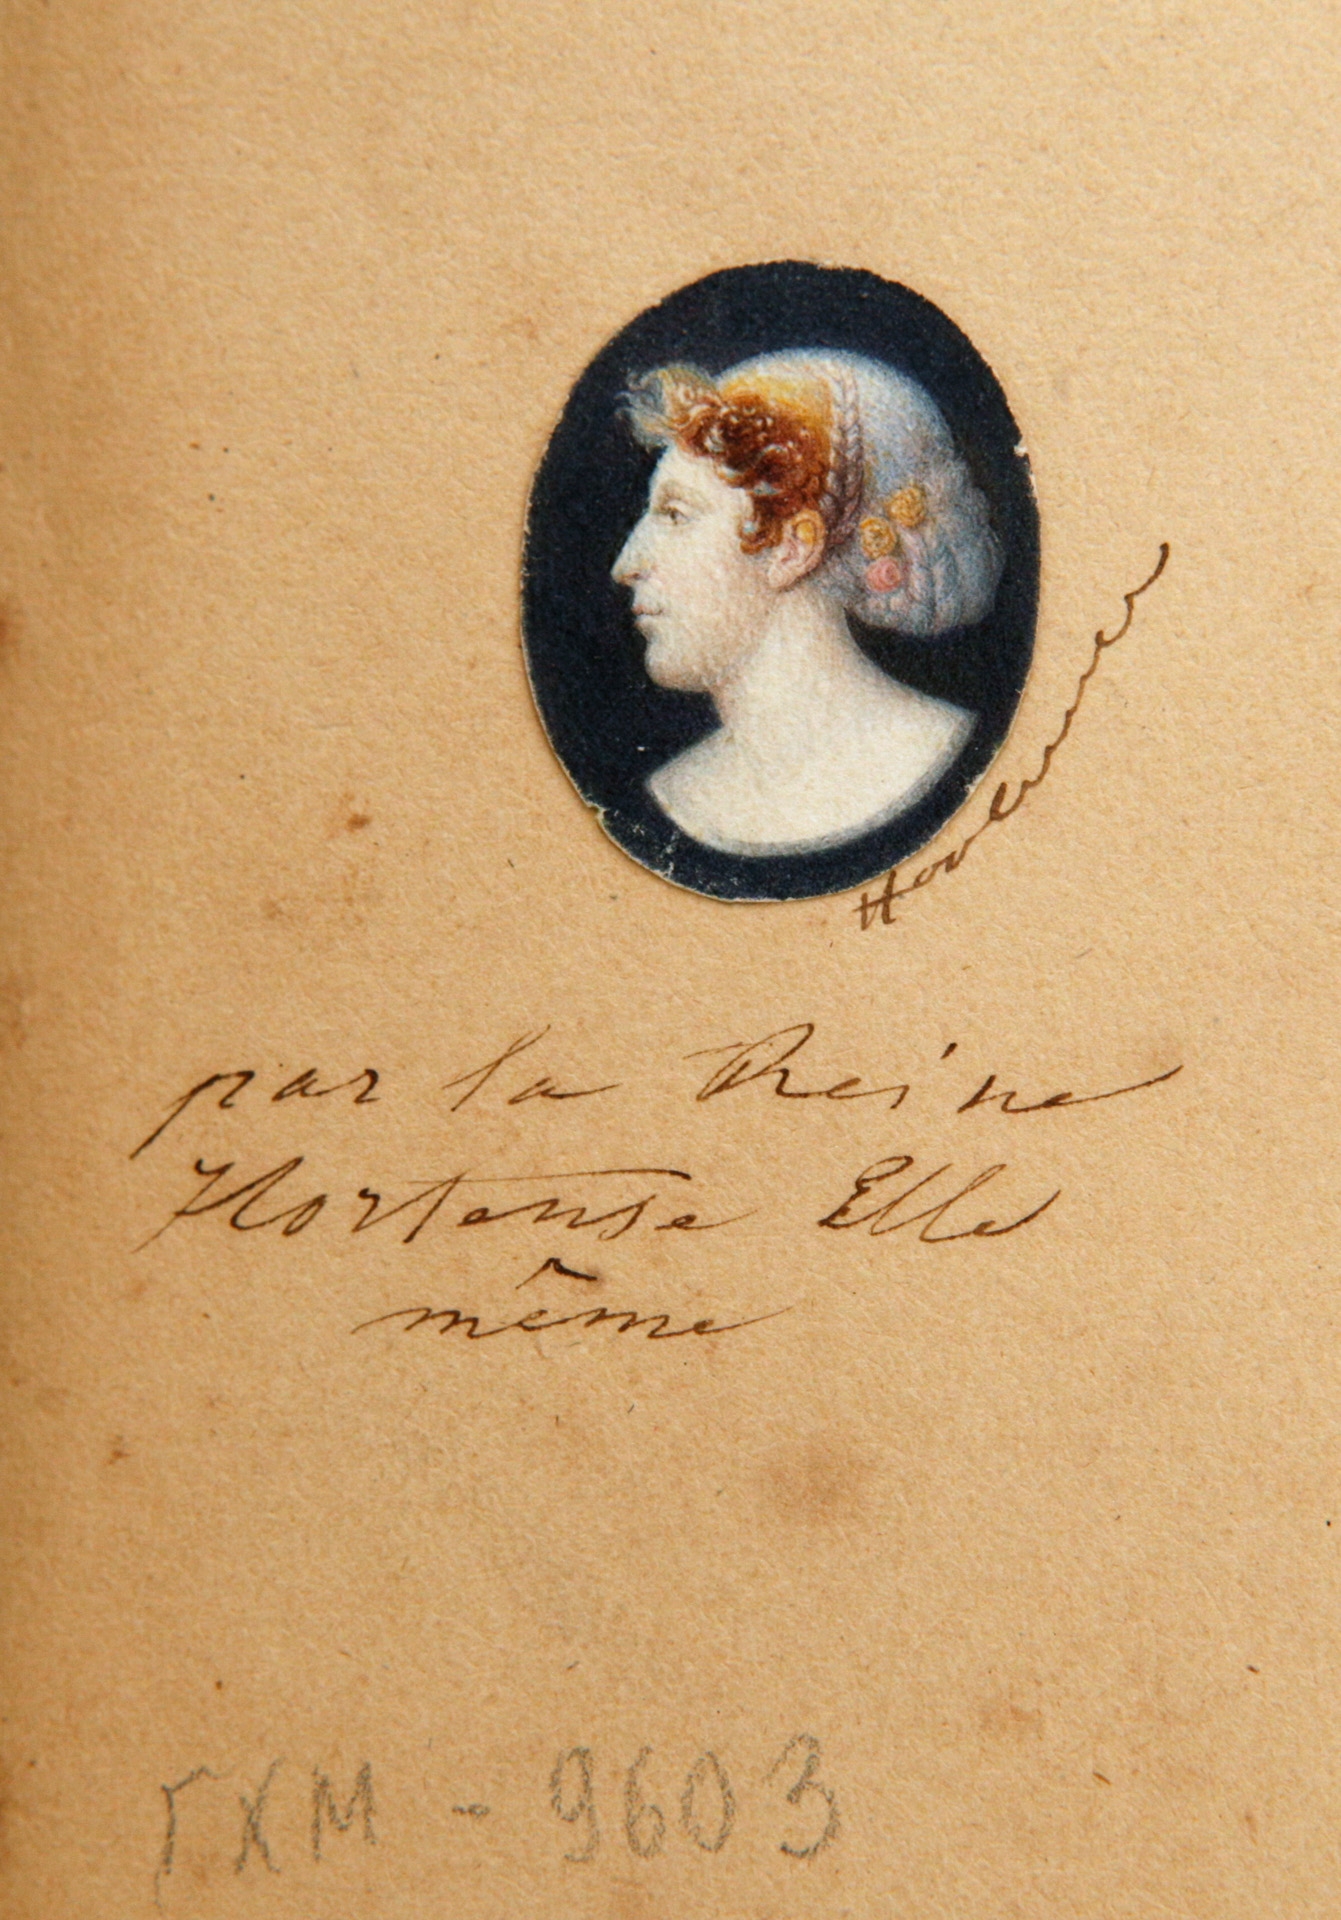 par la Reine
Hortense Elle
même
ГХМ - 9603